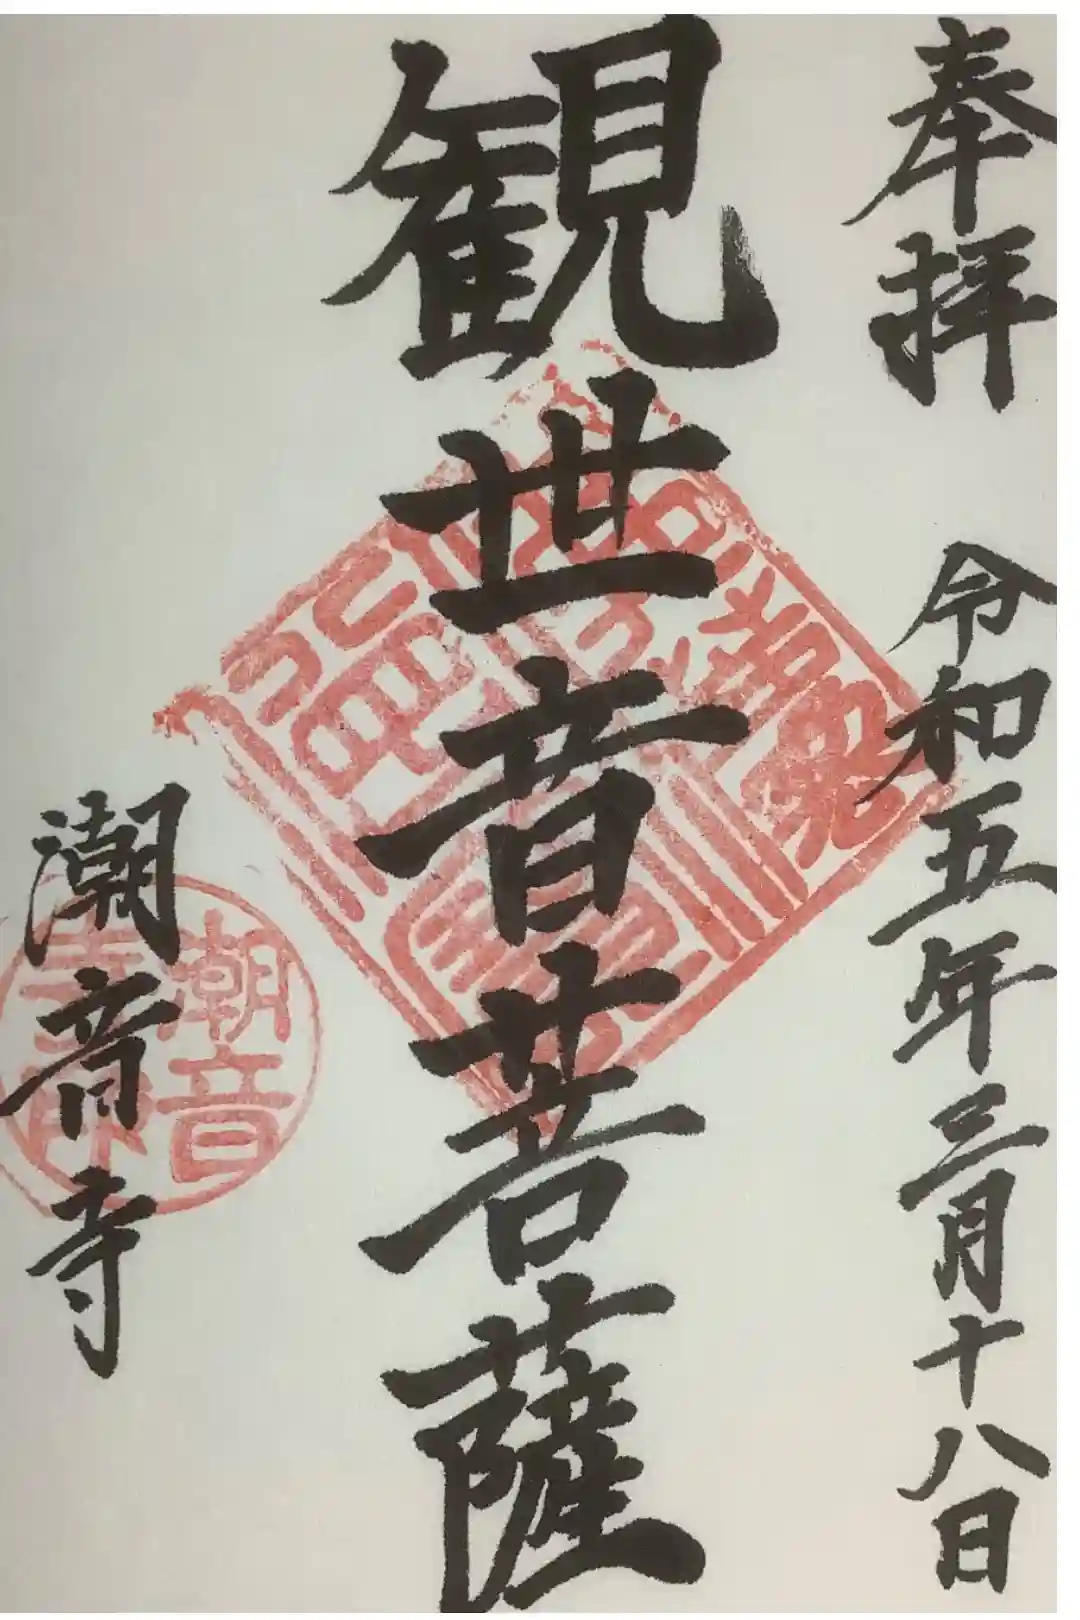 奉拝 令和五年三月十八日
観世音菩薩
潮音寺
潮音
寺印